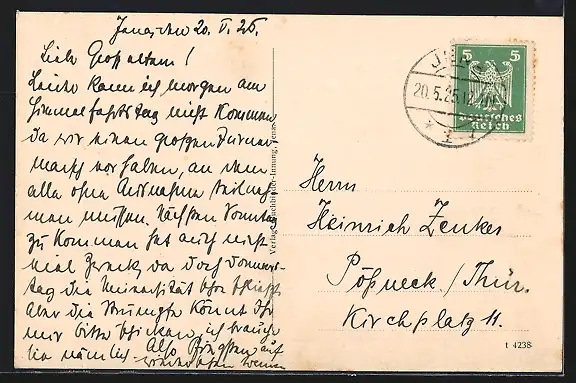 Jena, den 20. V. 25.
Liebe Großeltern!
Leider kann ich morgen am
Himmelfahrtstag nicht kommen
da wir einen großen Turner-
marsch vorhaben, an dem
alle ohne Ausnahme teilneh-
men müssen. Nächsten Sonntag
zu kommen hat auch nicht
viel Zweck, da doch Donners-
tag die Universität
Aber die könnt Ihr
mir bitte schicken, ich brauche
sie nämlich. Also Pfingsten auf
Wiedersehen
Verlag Buchbinder-Innung, Jena
JENA
20.5.25.12
* 1
5 5
Deutsches
Reich
Herrn
Heinrich Zenker
Pößneck / Thür.
Kirchplatz 11.
t 4238